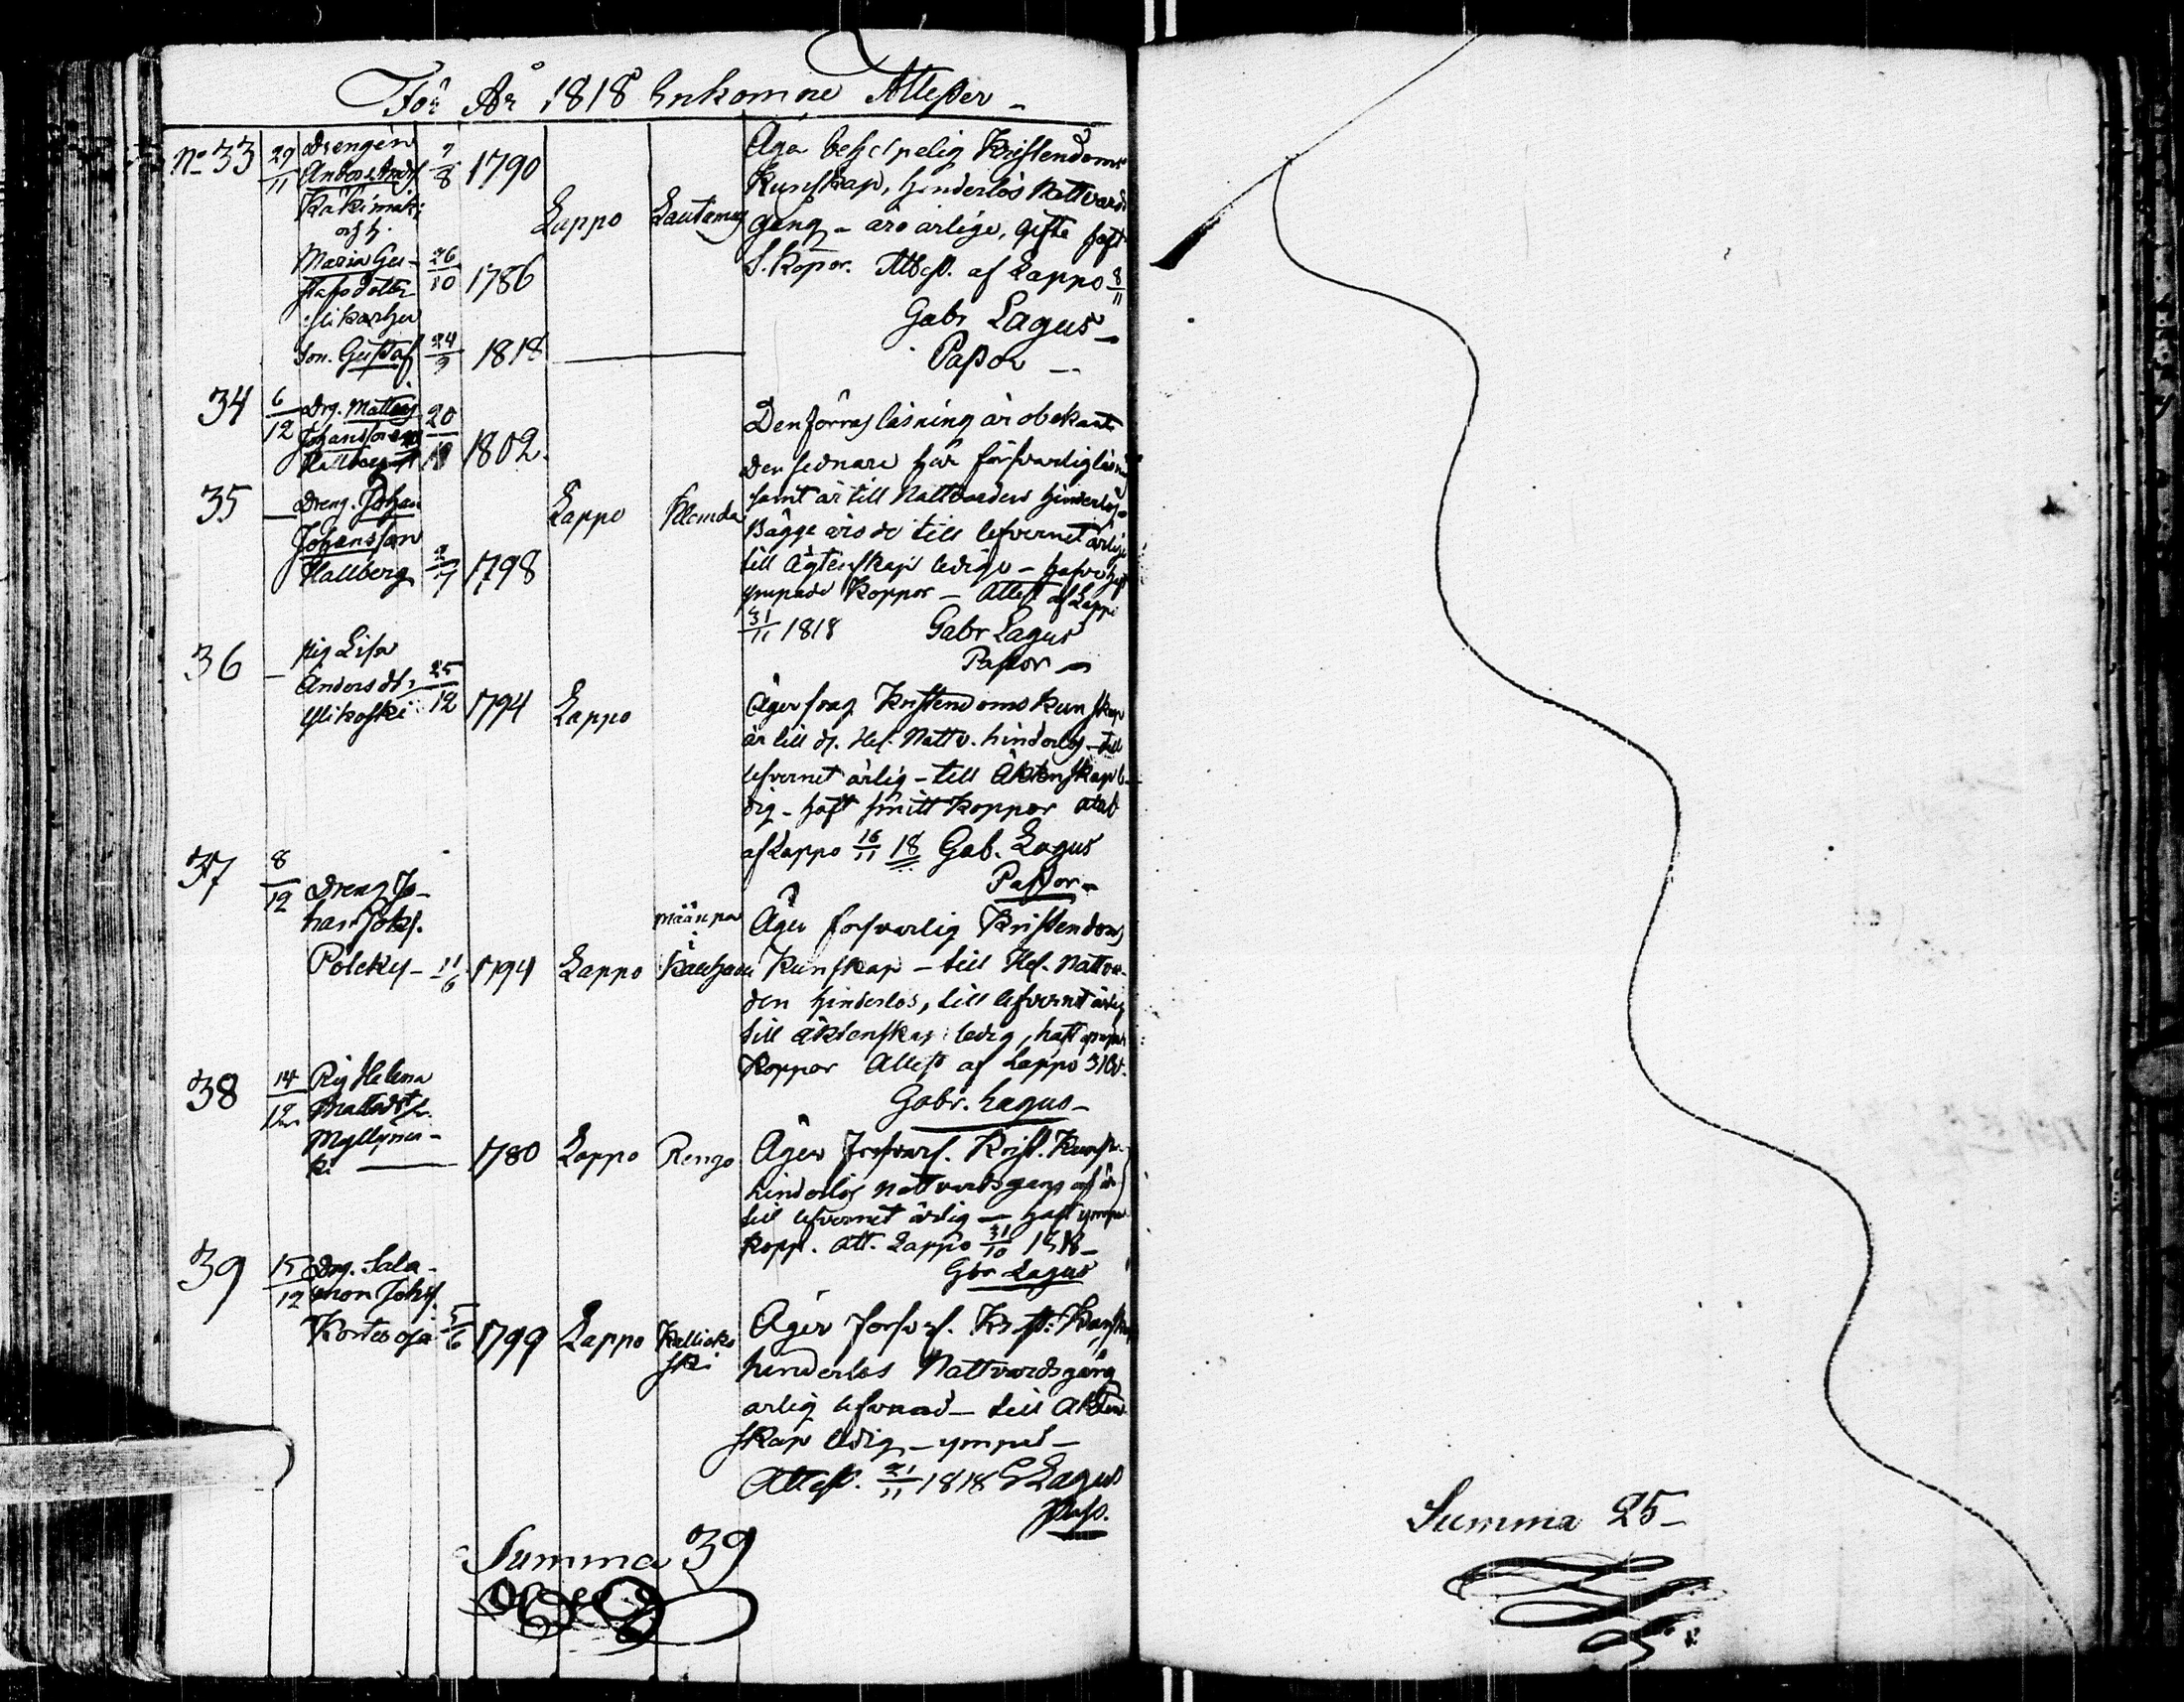 För År 1818 Inkomne Attester
No 33 29/11 Drengen
Anders Andsf. 7/8 1790
Kakimäki
och h.
Maria Gu- 26/10 1786
stafsdotter
son. Gustaf 24/9 1818
Lappo
Äga behjelpelig Kristendoms
Kunskap, hinderlös Nattvards
gang - äro ärlige, gifte haft
S. Kopor. Attest. af Lappo 8/11
Gabr Lagus
Pastor
34 6/12 Drg. Matts 20/10 1802.
Johansson
Hallberg
35 — Dreng. Johan
Johansson
Hallberg 2/7 1798
Lappo
Den förras läsning är obekant
Den sednare har försvarlig
samt är till Nattvarden hinderlös
Bägge äro de till lefvernet ärlige
till Ägtenskap ledige - hafva haft
ympade Koppor - Attest af Lappo
31/11 1818 Gabr Lagus
Pastor
36 — pig Lisa
Andersdr 25/12 1794 Lappo
Ylikoski
Äger svag Kristendoms kunskap
är till H. Nattv. hinderlös - till
lefvernet ärlig - till Äktenskap le-
dig - haft smitt koppor
af Lappo 16/11 18 Gab. Lagus
Pastor
37 8/12 Dreng Jo-
han Johsf.
Potcky - 11/6 1794 Lappo
Määnpä
i
Kauhava
Äger försvarlig Kristendoms
Kunskap - till H. Nattvar-
den hinderlös, till lefvernet ärlig
till äktenskap ledig, haft
Koppor Attest af Lappo
Gabr. Lagus
38 14/12 Pig Helena
Mattsdtr
Myllymä-
ki — 1780 Lappo Rengo
Äger försvarl. Krist. Kunsk.
hinderlös nattvardsgang
till lefvernet ärlig — haft ymp
kopp. Att. Lappo 31/10 1818
Gbr Lagus
39 15/12 Drg. Salo-
mon Johsf.
Kortesoja 5/6 1799 Lappo Kalliokoski
Äger försvarl. Krist: Kunskap
hinderlös Nattvardsgång
ärlig lefvnad - till Äkten-
skap ledig - ympad -
Attest. 21/11 1818 G Lagus
Past.
Summa 39
Summa 25